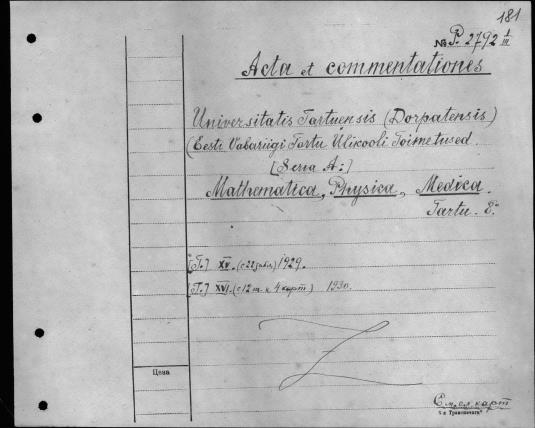 181
№ P. 2792 I/III
Acta et commentationes
Universitatis Tartuensis (Dorpatensis)
(Eesti Vabariigi Tartu Ülikooli Toimetused.
[Seria A:]
Mathematica, Physica, Medica.
Tartu. 8.°
[Т.] XV. (с 22 табл.) 1929.
[Т.] XVI. (с 12 т. и 4 карт.) 1930.
Цена
См. сл. карт